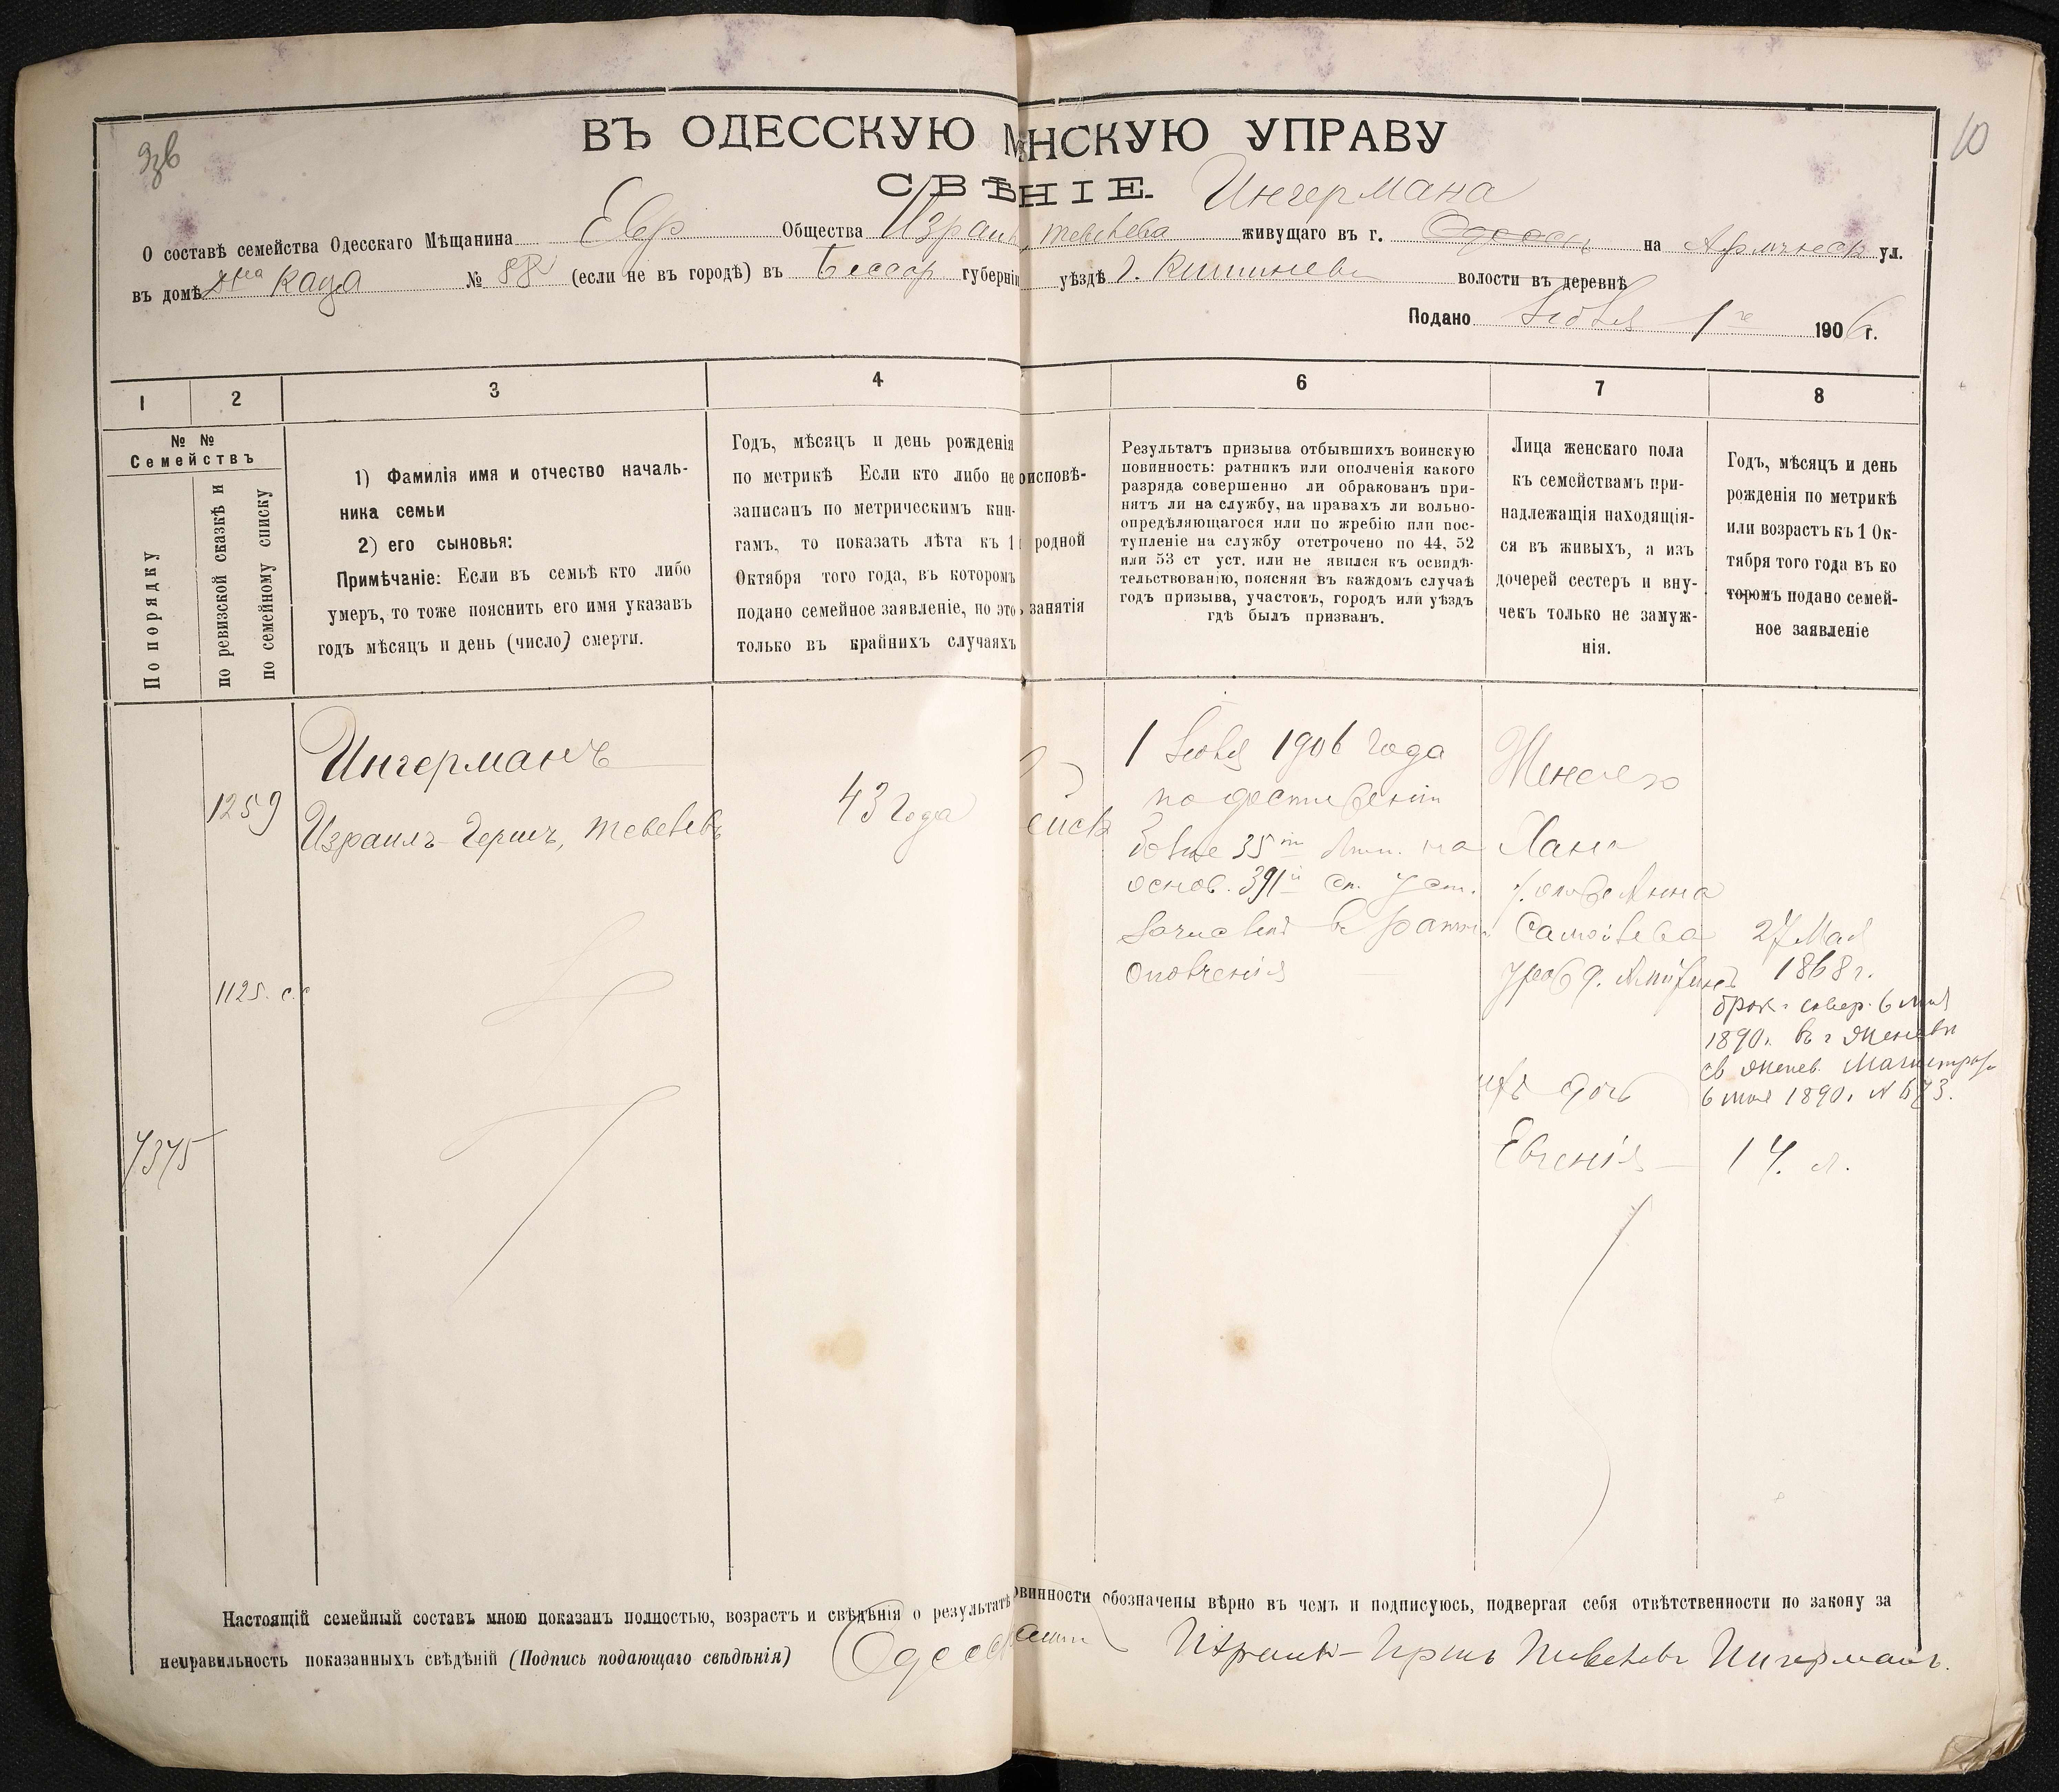 10
ВЪ ОДЕССКУЮ М НСКУЮ УПРАВУ
СВѢ НІЕ. Ингермана
О составѣ семейства Одесскаго Мѣщанина Евр Общества Израил Тевелева живущаго въ г. Одессы на ул.
въ домѣ Каца № 88 (если не въ городѣ) въ Бессар губерніи уѣздѣ г. Кишиневъ волости въ деревнѣ
Подано Іюля 1го 1906 г.
1 2 3 4 6 7 8
№ № Семействъ
По порядку
по ревизской сказкѣ и
по семейному списку
1) Фамилія имя и отчество началь-
ника семьи
2) его сыновья:
Примѣчаніе: Если въ семьѣ кто либо
умеръ, то тоже пояснить его имя указавъ
годъ мѣсяцъ и день (число) смерти.
Годъ, мѣсяцъ и день рожденія
по метрикѣ Если кто либо не
записанъ по метрическимъ кни-
гамъ, то показать лѣта къ 1
Октября того года, въ которомъ
подано семейное заявленіе, но это
только въ крайнихъ случаяхъ
оисповѣ-
родной
занятія
Результатъ призыва отбывшихъ воинскую
повинность: ратникъ или ополченія какого
разряда совершенно ли обракованъ при-
нятъ ли на службу, на правахъ ли вольно-
опредѣляющагося или по жребію или пос-
тупленіе на службу отстрочено по 44, 52
или 53 ст уст. или не явился къ освидѣ-
тельствованію, поясняя въ каждомъ случаѣ
годъ призыва, участокъ, городъ или уѣздъ
гдѣ былъ призванъ.
Лица женскаго пола
къ семействамъ при-
надлежащія находящія-
ся въ живыхъ, а изъ
дочерей сестеръ и вну-
чекъ только не замуж-
нія.
Годъ, мѣсяцъ и день
рожденія по метрикѣ
или возрастъ къ 1 Ок-
тября того года въ ко
торомъ подано семей-
ное заявленіе
1259
1125. с.с
7375
Ингерманъ
Израиль-Гершъ, Тевелевъ
43 года
1 Іюля 1906 года
по достиженіи
болѣе 35ти лѣт. на
основ. 391й ст. Уст.
зачисленъ въ ратн.
ополченія
Жена его
Хана
Анна
Самойлова
27 Мая
1868 г.
брак. совер. 6 мая
1890. въ г Женевѣ
св Женев. Магистра
6 мая 1890. N 673.
ихъ дочь
Евгенія 14. л.
Настоящій семейный составъ мною показанъ полностью, возрастъ и свѣдѣнія о результатѣ овинности обозначены вѣрно въ чемъ и подписуюсь, подвергая себя отвѣтственности по закону за
неправильность показанныхъ свѣдѣній (Подпись подающаго свѣдѣнія) Израиль-Гершъ Тевелевъ Ингерманъ.